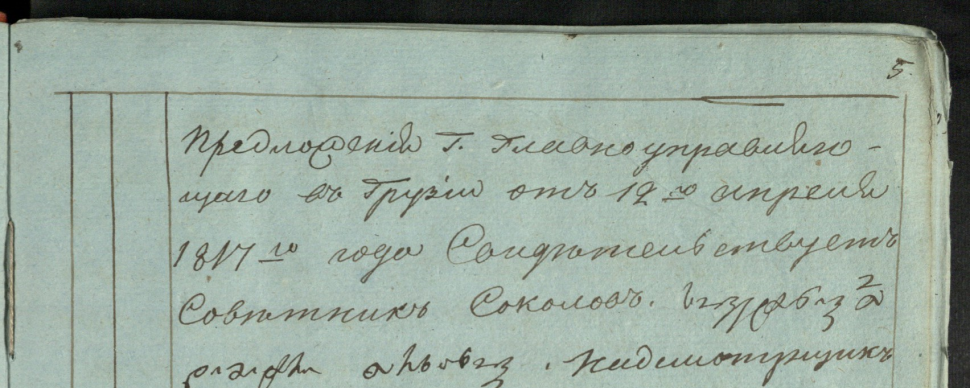 5
Предложенія Г. Главно управляю-
щаго въ Грузіи отъ 12 го апреля
1817 го года Свидѣтельствуетъ
Совѣтникъ Соколовъ.
надсмотрщикъ